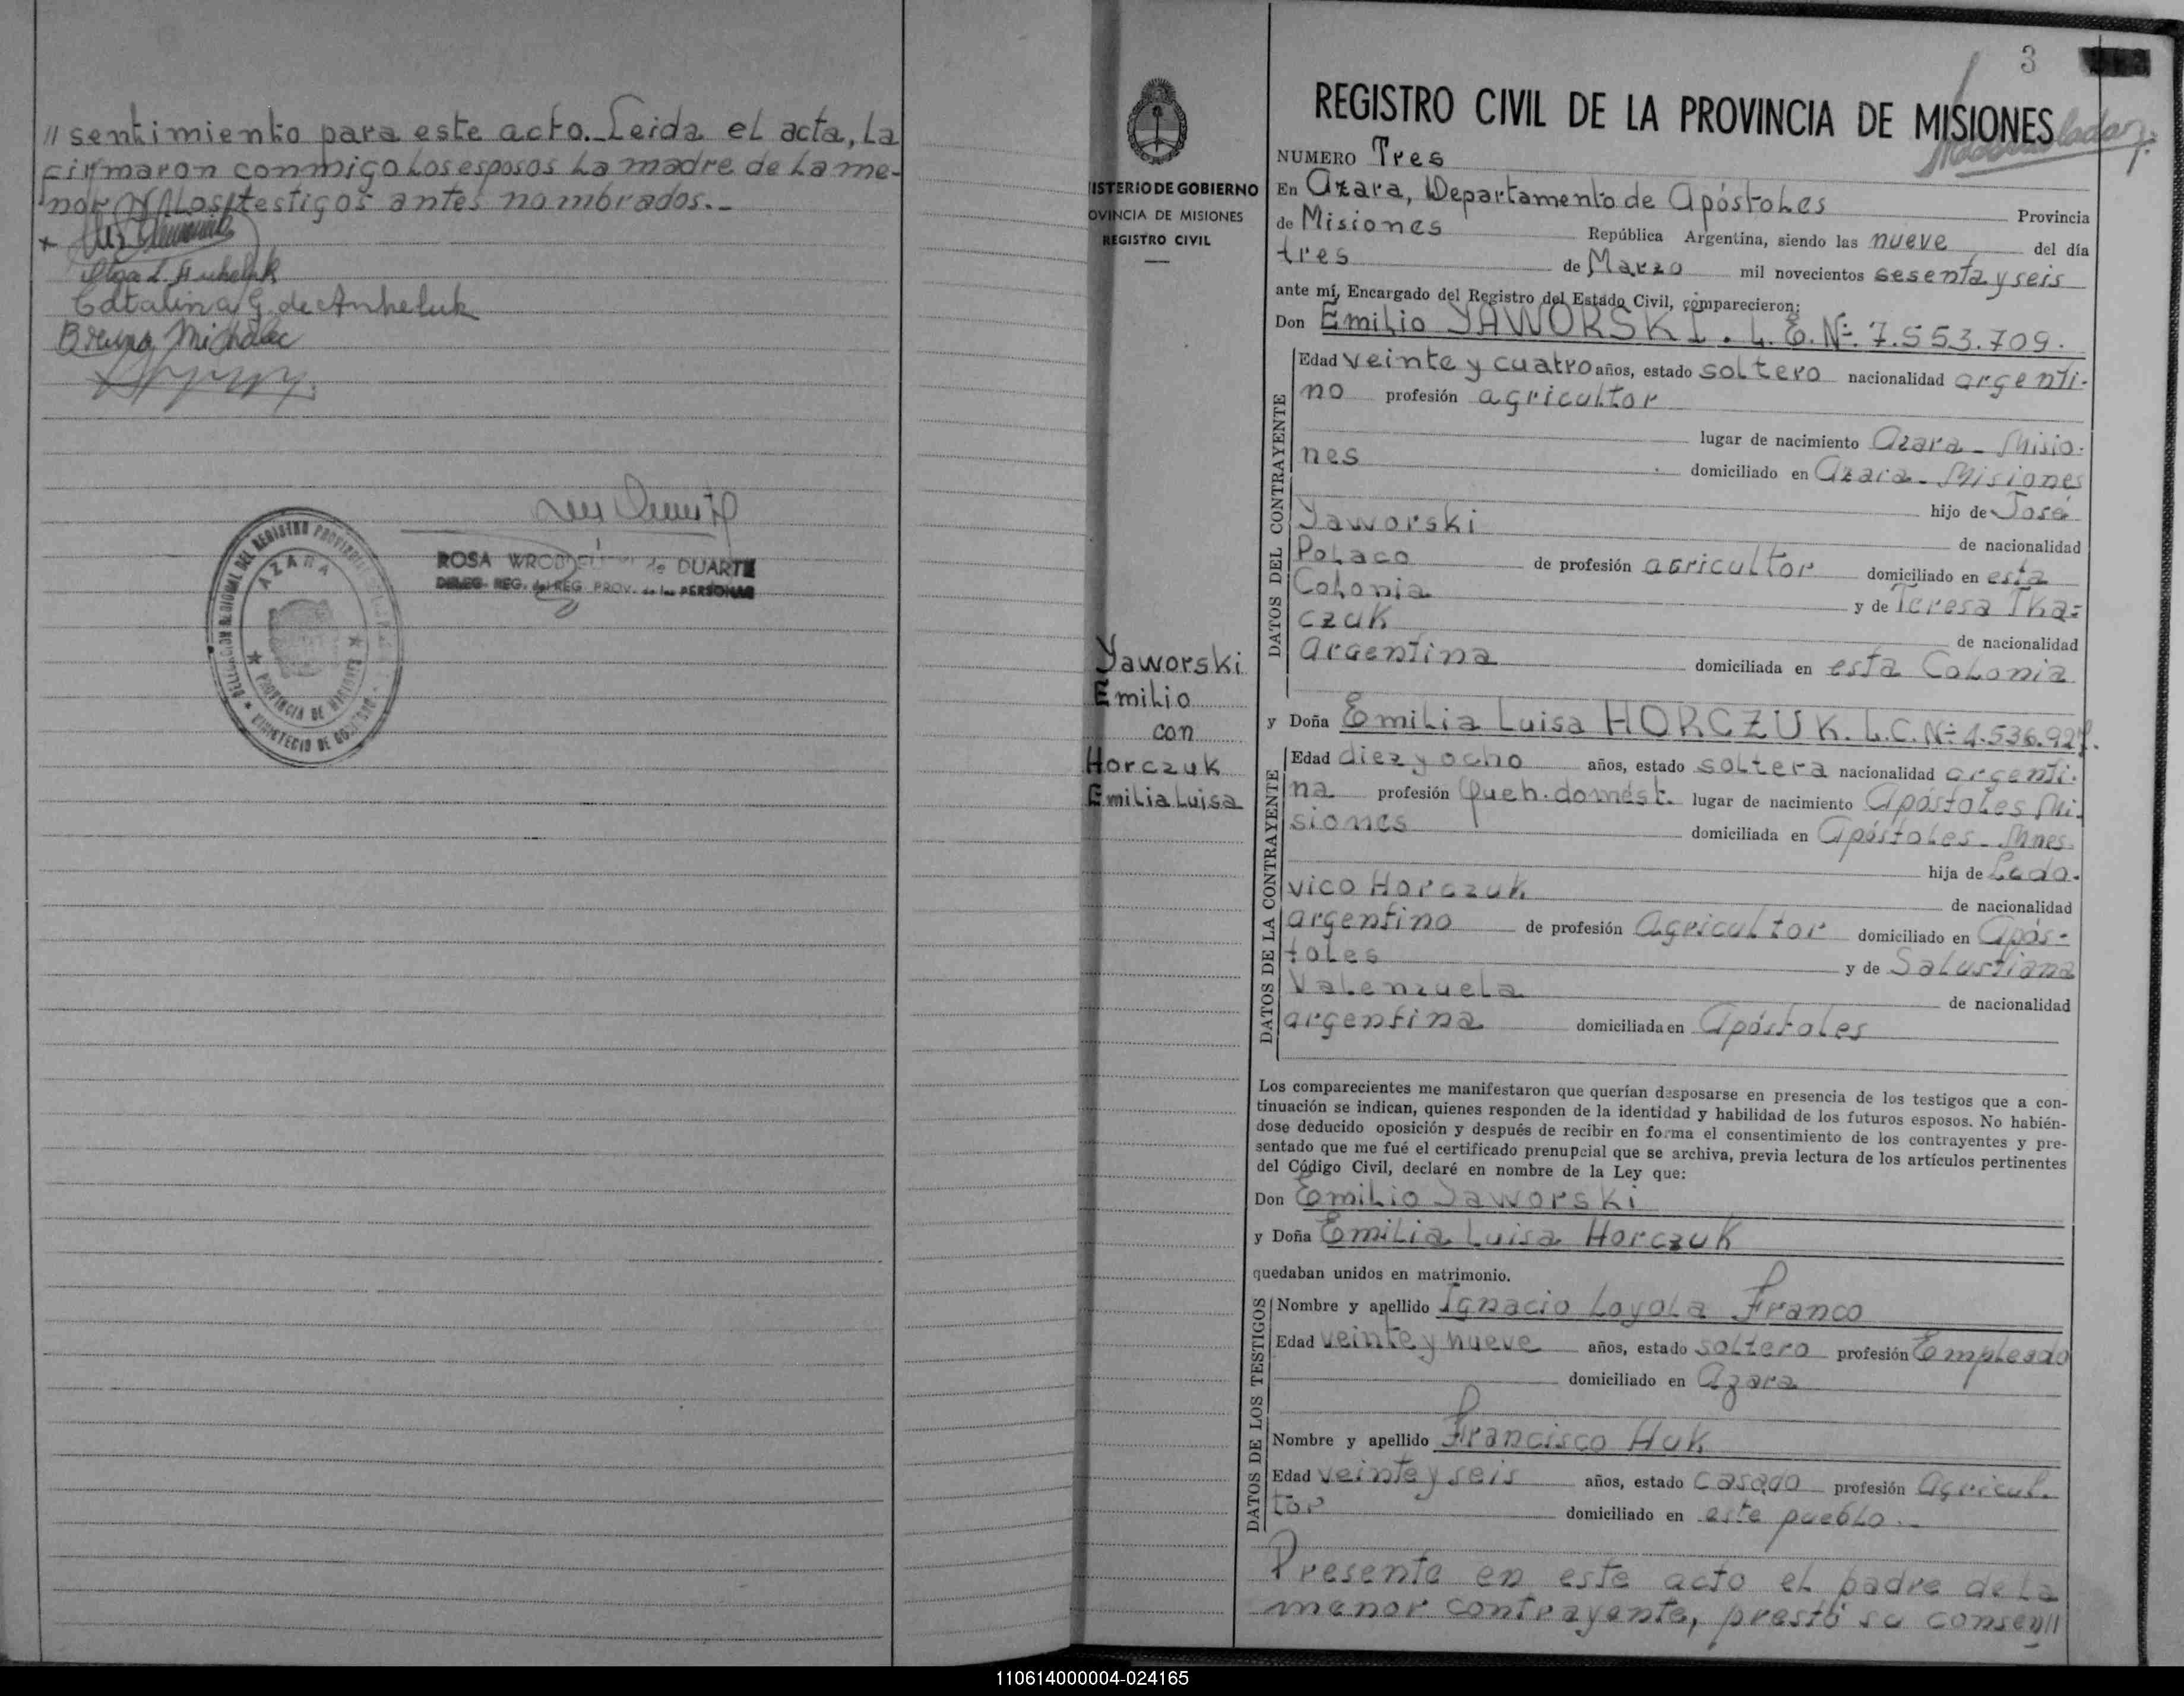 // sentimiento para este acto._ Leida el acta, la
firmaron conmigo los esposos la madre de la me-
nor y los testigos antes nombrados._
Olga L. Anheluk
Catalina G. de Anheluk
Bruno Michalec
ROSA WROBEL de DUARTE
DELEG. REG. del REG. PROV. de las PERSONAS
DELEGACION REGIONAL DEL REGISTRO PROVINCIAL
AZARA
PROVINCIA DE MISIONES
MINISTERIO DE GOBIERNO
ISTERIO DE GOBIERNO
OVINCIA DE MISIONES
REGISTRO CIVIL
Yaworski
Emilio
con
Horczuk
Emilia Luisa
3
REGISTRO CIVIL DE LA PROVINCIA DE MISIONES
NUMERO Tres
En Azara, Departamento de Apóstoles Provincia
de Misiones República Argentina, siendo las nueve del día
tres de Marzo mil novecientos sesenta y seis
ante mí, Encargado del Registro del Estado Civil, comparecieron:
Don Emilio YAWORSKI. L.E. Nº. 7.553.709.
DATOS DEL CONTRAYENTE
Edad veinte y cuatro años, estado soltero nacionalidad argenti-
no profesión agricultor
lugar de nacimiento Azara - Misio-
nes domiciliado en Azara - Misiones
hijo de José
Yaworski de nacionalidad
Polaco de profesión agricultor domiciliado en esta
Colonia y de Teresa Tka-
czuk de nacionalidad
argentina domiciliada en esta Colonia
y Doña Emilia Luisa HORCZUK. L.C. Nº 4.536.927.
DATOS DE LA CONTRAYENTE
Edad diez y ocho años, estado soltera nacionalidad argenti-
na profesión Queh. domést. lugar de nacimiento Apóstoles Mi-
siones domiciliada en Apóstoles - Mnes.
hija de Ludo-
vico Horczuk de nacionalidad
argentino de profesión Agricultor domiciliado en Após-
toles y de Salustiana
Valenzuela de nacionalidad
argentina domiciliada en Apóstoles
Los comparecientes me manifestaron que querían desposarse en presencia de los testigos que a con-
tinuación se indican, quienes responden de la identidad y habilidad de los futuros esposos. No habién-
dose deducido oposición y después de recibir en forma el consentimiento de los contrayentes y pre-
sentado que me fué el certificado prenupcial que se archiva, previa lectura de los artículos pertinentes
del Código Civil, declaré en nombre de la Ley que:
Don Emilio Yaworski
y Doña Emilia Luisa Horczuk
quedaban unidos en matrimonio.
DATOS DE LOS TESTIGOS
Nombre y apellido Ignacio Loyola Franco
Edad veinte y nueve años, estado soltero profesión Empleado
domiciliado en Azara
Nombre y apellido Francisco Huk
Edad veinte y seis años, estado casado profesión Agricul-
tor domiciliado en este pueblo.-
Presente en este acto el padre de la
menor contrayente, prestó su consen//
110614000004-024165